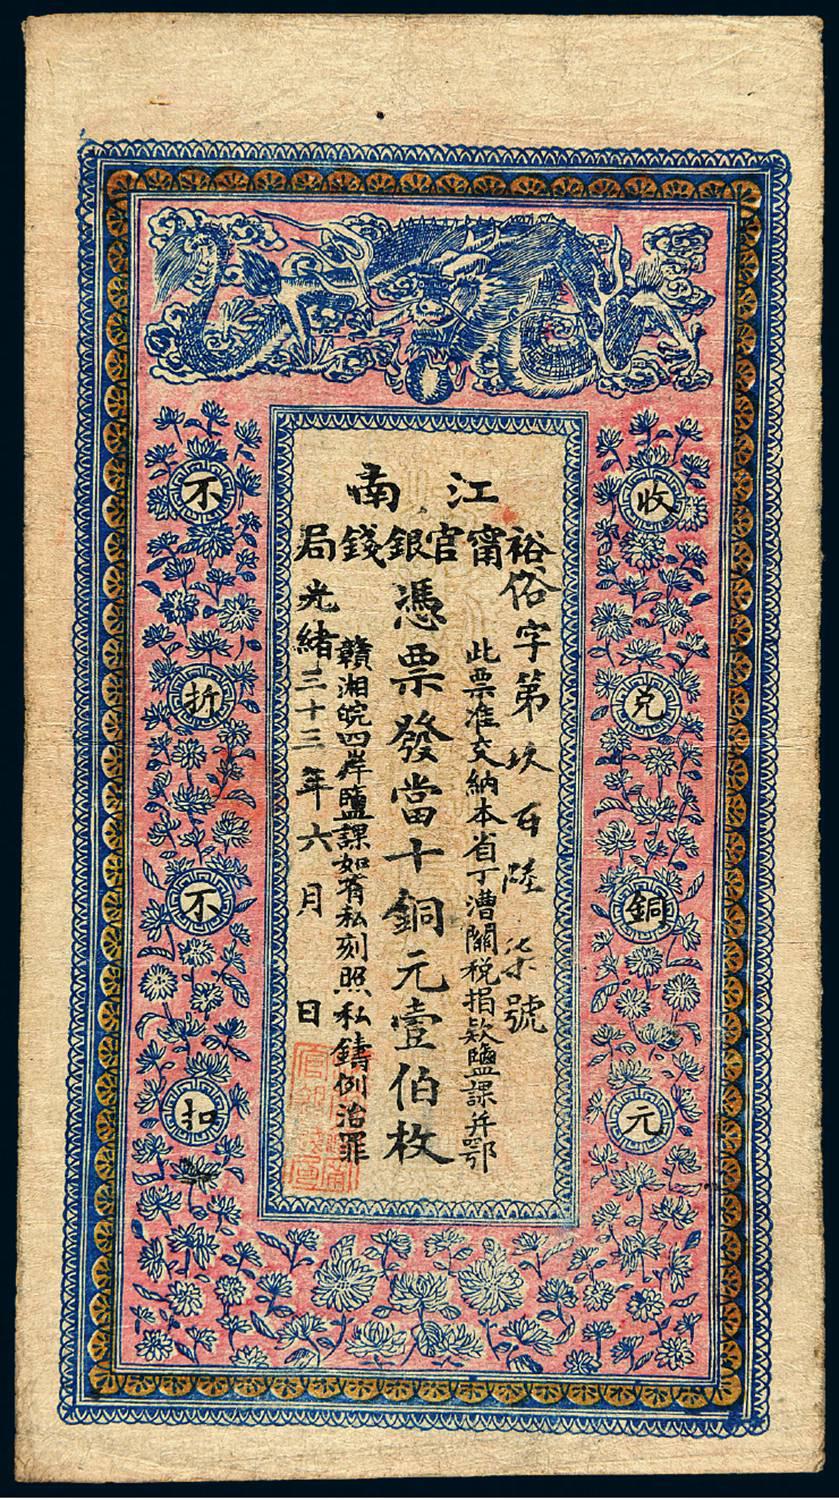 江南
裕甯官銀錢局
俗字第玖百陸柒號
此票准交納本省丁漕關稅捐欵鹽課并鄂
憑票發當十銅元壹伯枚
贛湘皖四岸鹽課如有私刻照私鑄例治罪
光緒三十三年六月 日
收兑銅元
不折不扣